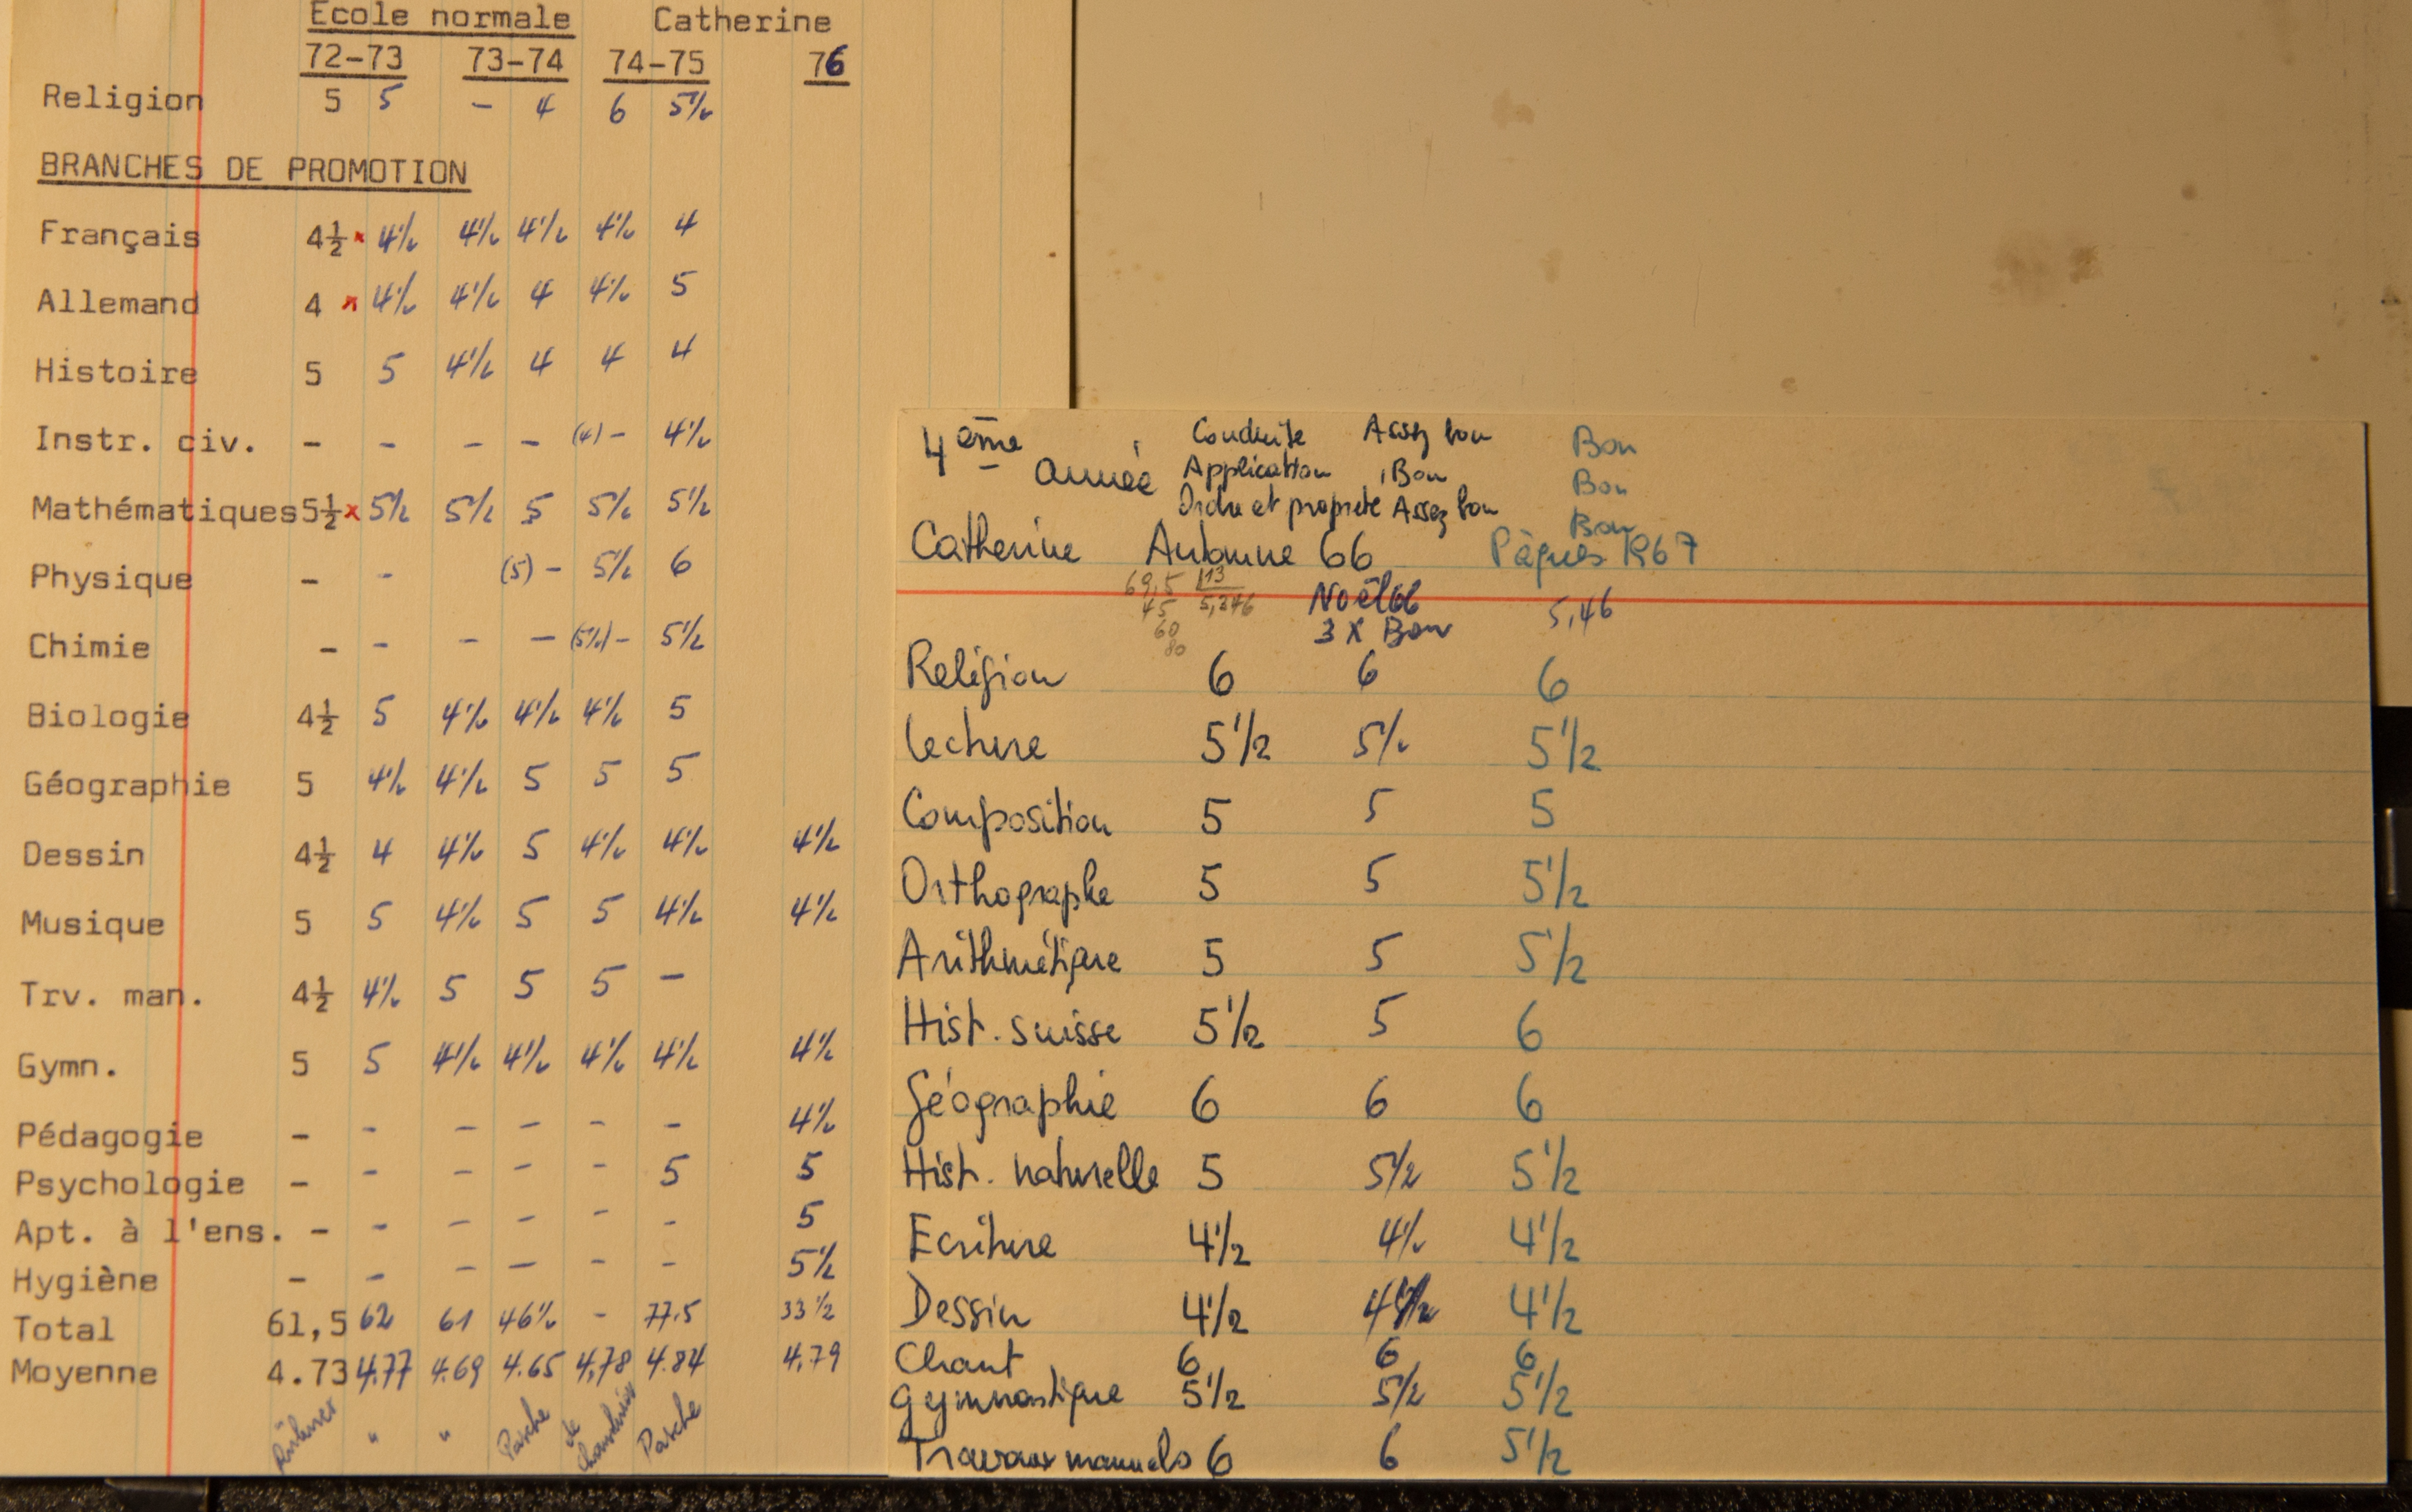 Ecole normale Catherine
72-73 73-74 74-75 76
Religion 5 5 - 4 6 5½
BRANCHES DE PROMOTION
Français 4½ x 4½ 4½ 4½ 4½ 4
Allemand 4 x 4½ 4½ 4 4½ 5
Histoire 5 5 4½ 4 4 4
Instr. civ. - - - - (4) - 4½
Mathématiques 5½ x 5½ 5½ 5 5½ 5½
Physique - - (5) - 5½ 6
Chimie - - - - (5½) - 5½
Biologie 4½ 5 4½ 4½ 4½ 5
Géographie 5 4½ 4½ 5 5 5
Dessin 4½ 4 4½ 5 4½ 4½ 4½
Musique 5 5 4½ 5 5 4½ 4½
Trv. man. 4½ 4½ 5 5 5 -
Gymn. 5 5 4½ 4½ 4½ 4½ 4½
Pédagogie - - - - - - 4½
Psychologie - - - - - 5 5
Apt. à l'ens. - - - - - - 5
Hygiène - - - - - - 5½
Total 61,5 62 61 46½ - 77.5 33 1/2
Moyenne 4.73 4.77 4.69 4.65 4,78 4.84 4.79
" " Pasche de Pasche
4ème année
Conduite Assez bon Bon
Application Bon Bon
Ordre et propreté Assez bon Bon
Catherine Automne 66 Pâques 1967
69,5 13
45 5,346
60
80
Noël 66
3 X Bon
5,46
Religion 6 6 6
Lecture 5 1/2 5½ 5 1/2
Composition 5 5 5
Orthographe 5 5 5 1/2
Arithmétique 5 5 5 1/2
Hist. suisse 5 1/2 5 6
Géographie 6 6 6
Hist. naturelle 5 5 1/2 5 1/2
Ecriture 4 1/2 4½ 4 1/2
Dessin 4 1/2 4 1/2 4 1/2
Chant 6 6 6
Gymnastique 5 1/2 5 1/2 5 1/2
Travaux manuels 6 6 5 1/2